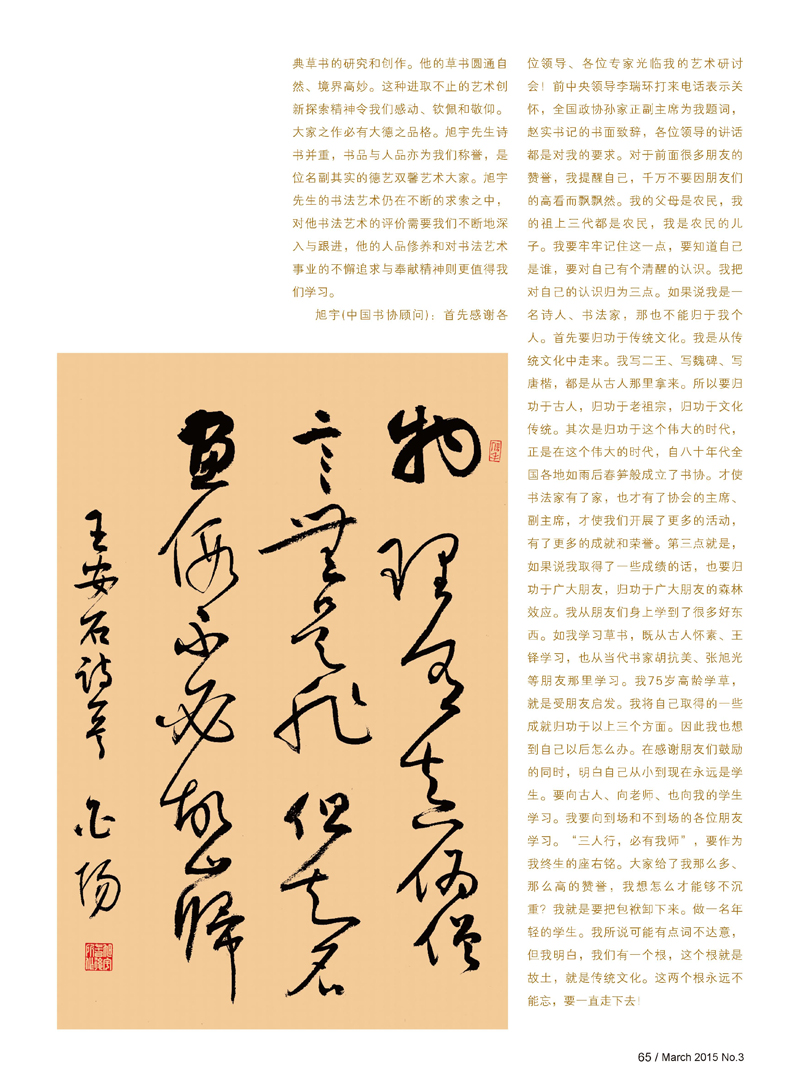 典草书的研究和创作。他的草书圆通自
然、境界高妙。这种进取不止的艺术创
新探索精神令我们感动、钦佩和敬仰。
大家之作必有大德之品格。旭宇先生诗
书并重，书品与人品亦为我们称誉，是
位名副其实的德艺双馨艺术大家。旭宇
先生的书法艺术仍在不断的求索之中，
对他书法艺术的评价需要我们不断地深
入与跟进，他的人品修养和对书法艺术
事业的不懈追求与奉献精神则更值得我
们学习。
旭宇(中国书协顾问)：首先感谢各
位领导、各位专家光临我的艺术研讨
会！前中央领导李瑞环打来电话表示关
怀，全国政协孙家正副主席为我题词，
赵实书记的书面致辞，各位领导的讲话
都是对我的要求。对于前面很多朋友的
赞誉，我提醒自己，千万不要因朋友们
的高看而飘飘然。我的父母是农民，我
的祖上三代都是农民，我是农民的儿
子。我要牢牢记住这一点，要知道自己
是谁，要对自己有个清醒的认识。我把
对自己的认识归为三点。如果说我是一
名诗人、书法家，那也不能归于我个
人。首先要归功于传统文化。我是从传
统文化中走来。我写二王、写魏碑、写
唐楷，都是从古人那里拿来。所以要归
功于古人，归功于老祖宗，归功于文化
传统。其次是归功于这个伟大的时代，
正是在这个伟大的时代，自八十年代全
国各地如雨后春笋般成立了书协。才使
书法家有了家，也才有了协会的主席、
副主席，才使我们开展了更多的活动，
有了更多的成就和荣誉。第三点就是，
如果说我取得了一些成绩的话，也要归
功于广大朋友，归功于广大朋友的森林
效应。我从朋友们身上学到了很多好东
西。如我学习草书，既从古人怀素、王
铎学习，也从当代书家胡抗美、张旭光
等朋友那里学习。我75岁高龄学草，
就是受朋友启发。我将自己取得的一些
成就归功于以上三个方面。因此我也想
到自己以后怎么办。在感谢朋友们鼓励
的同时，明白自己从小到现在永远是学
生。要向古人、向老师、也向我的学生
学习。我要向到场和不到场的各位朋友
学习。“三人行，必有我师”，要作为
我终生的座右铭。大家给了我那么多、
那么高的赞誉，我想怎么才能够不沉
重？我就是要把包袱卸下来。做一名年
轻的学生。我所说可能有点词不达意，
但我明白，我们有一个根，这个根就是
故土，就是传统文化。这两个根永远不
能忘，要一直走下去！
物理有真伪僧
言無是非但知名
假不必故山歸
王安石诗一首
65 / March 2015 No.3